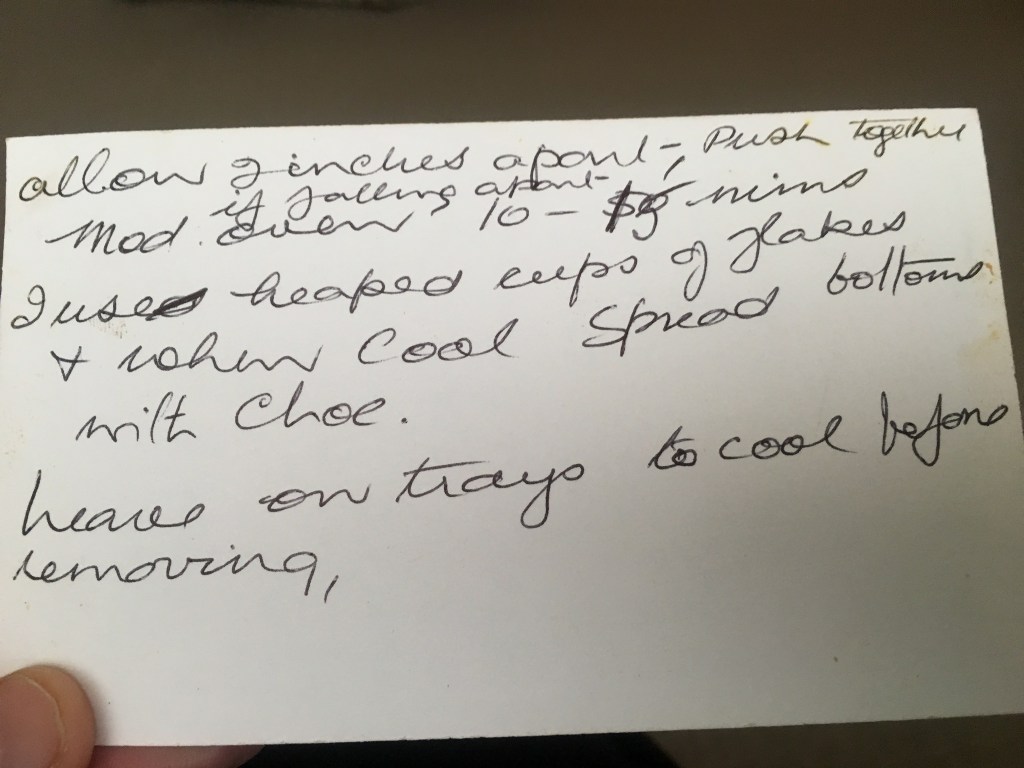 allow 2 inches apart -, Push together
if falling apart -
Mod. Oven 10 - mins
I use heaped cups of flakes
& when Cool Spread bottoms
with Choc.
Leave on trays to cool before
removing,